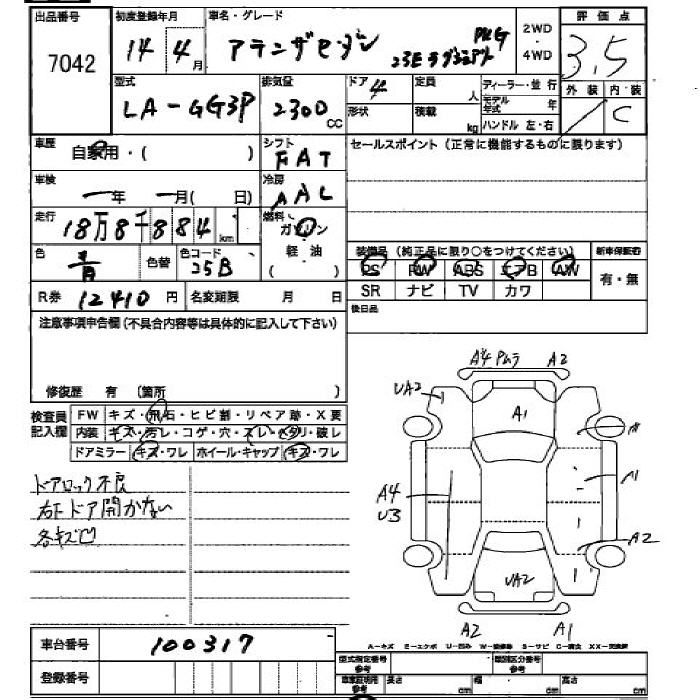 出品番号 初度登録年月 車名・グレード 2WD・4WD 評価点
7042 14 4月 アテンザセダン 23E ラグジュアリ PKG 3.5
型式 排気量 ドア 4 定員 人 ディーラー・並行 外装 内装
LA-GG3P 2300 CC 形状 積載 kg モデル年式 年 C
ハンドル 左・右
車歴 自家用・( ) シフト FAT セールスポイント(正常に機能するものに限ります)
車検 一年 一月( 日) 冷房 AAC
走行 18万8千884 km 燃料 ガソリン
色 青 色替 色コード 25B 軽油 ( )
装備品(純正品に限り○をつけてください) 新車保証書
PS PW ABS エアB AW 有・無
SR ナビ TV カワ
R券 12410円 名変期限 月 日
後日品
注意事項申告欄(不具合内容等は具体的に記入して下さい)
修復歴 有 (箇所 )
検査員記入欄 FW キズ・飛石・ヒビ割・リペア跡・X要
内装 キズ・汚レ・コゲ・穴・スレ・ヘタリ・破レ
ドアミラー キズ・ワレ ホイール・キャップ キズ・ワレ
ドアロック不良
右下ドア開かない
各キズ凹
A4 Pムラ A2
UA2
A1
A1
A4
U3
A2
UA2
A2 A1
車台番号 100317
A-キズ E-エクボ U-凹み W-補修跡 S-サビ C-腐食 XX-交換済
登録番号 型式指定番号 参考 類別区分番号 参考
車庫証明用 参考 長さ cm 幅 cm 高さ cm